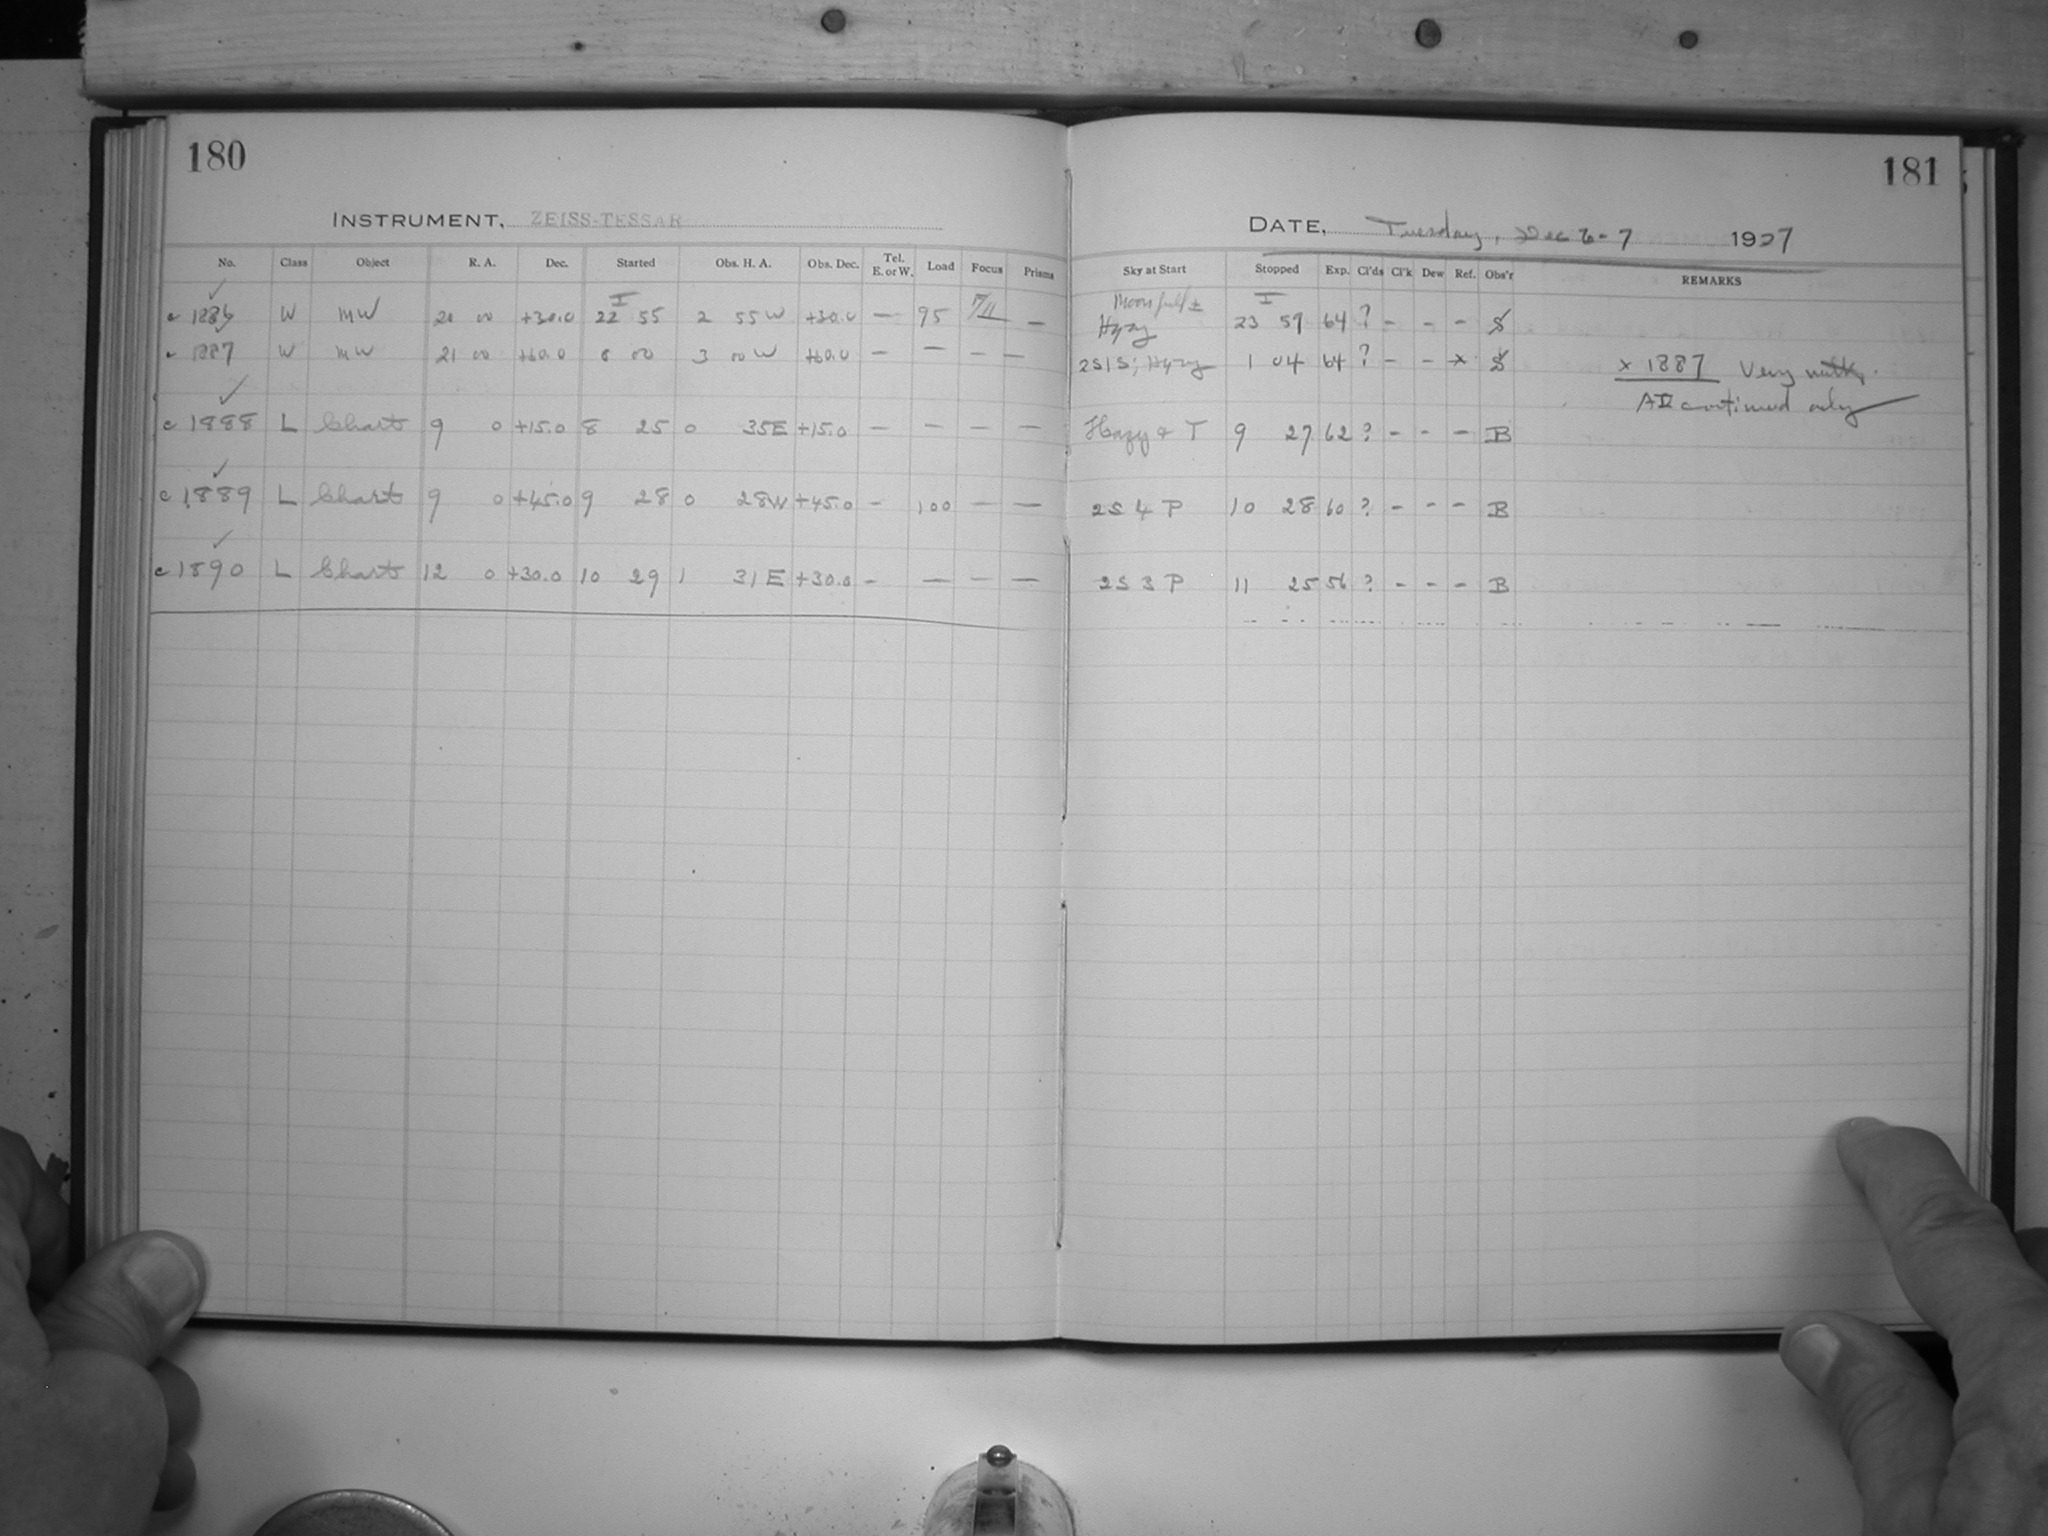 180
INSTRUMENT, ZEISS-TESSAR
No. Class Object R. A. Dec. Started Obs. H. A. Obs. Dec. Tel. E. or W. Load Focus Prisms
c 1886 W MW 20 00 +30.0 I 22 55 2 55W +30.0 — 95 —
c 1887 W MW 21 00 +60.0 0 00 3 00 W +60.0 — — — —
c 1888 L Chart 9 0 +15.0 8 25 0 35E +15.0 — — — —
c 1889 L Chart 9 0 +45.0 9 28 0 28W +45.0 - 100 — —
c 1890 L Chart 12 0 +30.0 10 29 1 31E +30.0 - — — —
181
DATE, Tuesday, Dec 6-7 1927
Sky at Start Stopped Exp. Cl'ds Cl'k Dew Ref. Obs'r REMARKS
Moon full ±
Hazy I 23 59 64 ? - - - S
2S1S; Hazy 1 04 64 ? - - x S x 1887 Very
continued only
Hazy & T 9 27 62 ? - - - B
2S 4 P 10 28 60 ? - - - B
2S 3 P 11 25 56 ? - - - B